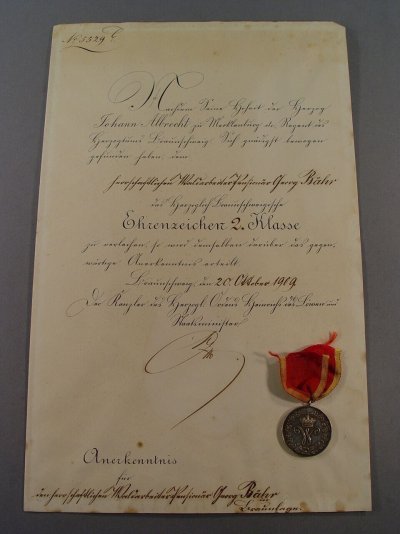 No 5529 C
Nachdem Seine Hoheit der Herzog
Johann Albrecht zu Mecklenburg als Regent des
Herzogtums Braunschweig Sich gnädigst bewogen
gefunden haben dem
herrschaftlichen Waldarbeiter Pensionär Georg Bähr
das Herzoglich Braunschweigische
Ehrenzeichen 2. Klasse
zu verleihen, so wird demselben darüber das gegen-
wärtige Anerkenntnis erteilt.
Braunschweig, den 20. Oktober 1909.
Der Kanzler des Herzogl. Ordens Heinrichs des Löwen und
Staatsminister
Anerkenntnis
für
den herrschaftlichen Waldarbeiter Pensionär Georg Bähr
Braunlage.